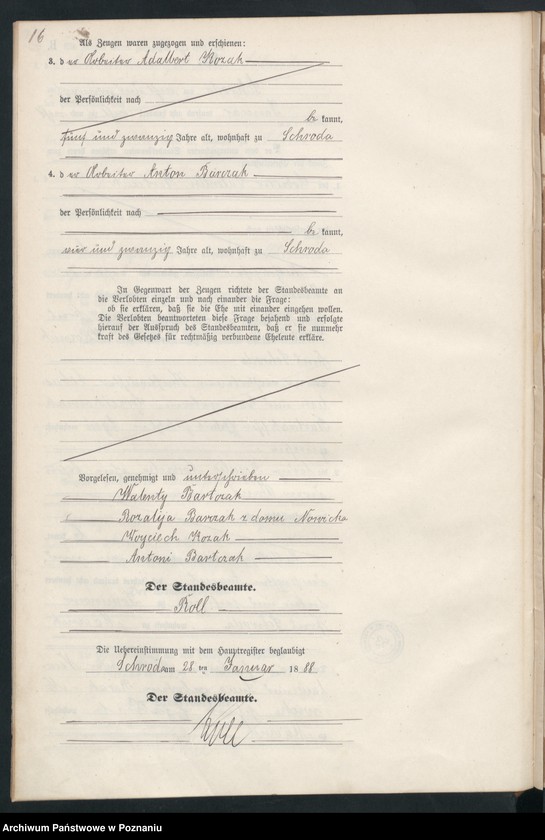 16
Als Zeugen waren zugezogen und erschienen:
3. der Arbeiter Adalbert Kozak
der Persönlichkeit nach
be kannt,
fünf und zwanzig Jahre alt, wohnhaft zu Schroda
4. der Arbeiter Anton Barczak
der Persönlichkeit nach
be kannt,
vier und zwanzig Jahre alt, wohnhaft zu Schroda
In Gegenwart der Zeugen richtete der Standesbeamte an
die Verlobten einzeln und nach einander die Frage:
ob sie erklären, daß sie die Ehe mit einander eingehen wollen.
Die Verlobten beantworteten diese Frage bejahend und erfolgte
hierauf der Ausspruch des Standesbeamten, daß er sie nunmehr
kraft des Gesetzes für rechtmäßig verbundene Eheleute erkläre.
Vorgelesen, genehmigt und unterschrieben
Walenty Bartczak
Rozalija Barczak z domu Nowicka
Woyciech Kozak
Antoni Bartczak
Der Standesbeamte.
Roll
Die Uebereinstimmung mit dem Hauptregister beglaubigt
Schroda am 28 ten Januar 1888
Der Standesbeamte.
Roll
Archiwum Państwowe w Poznaniu